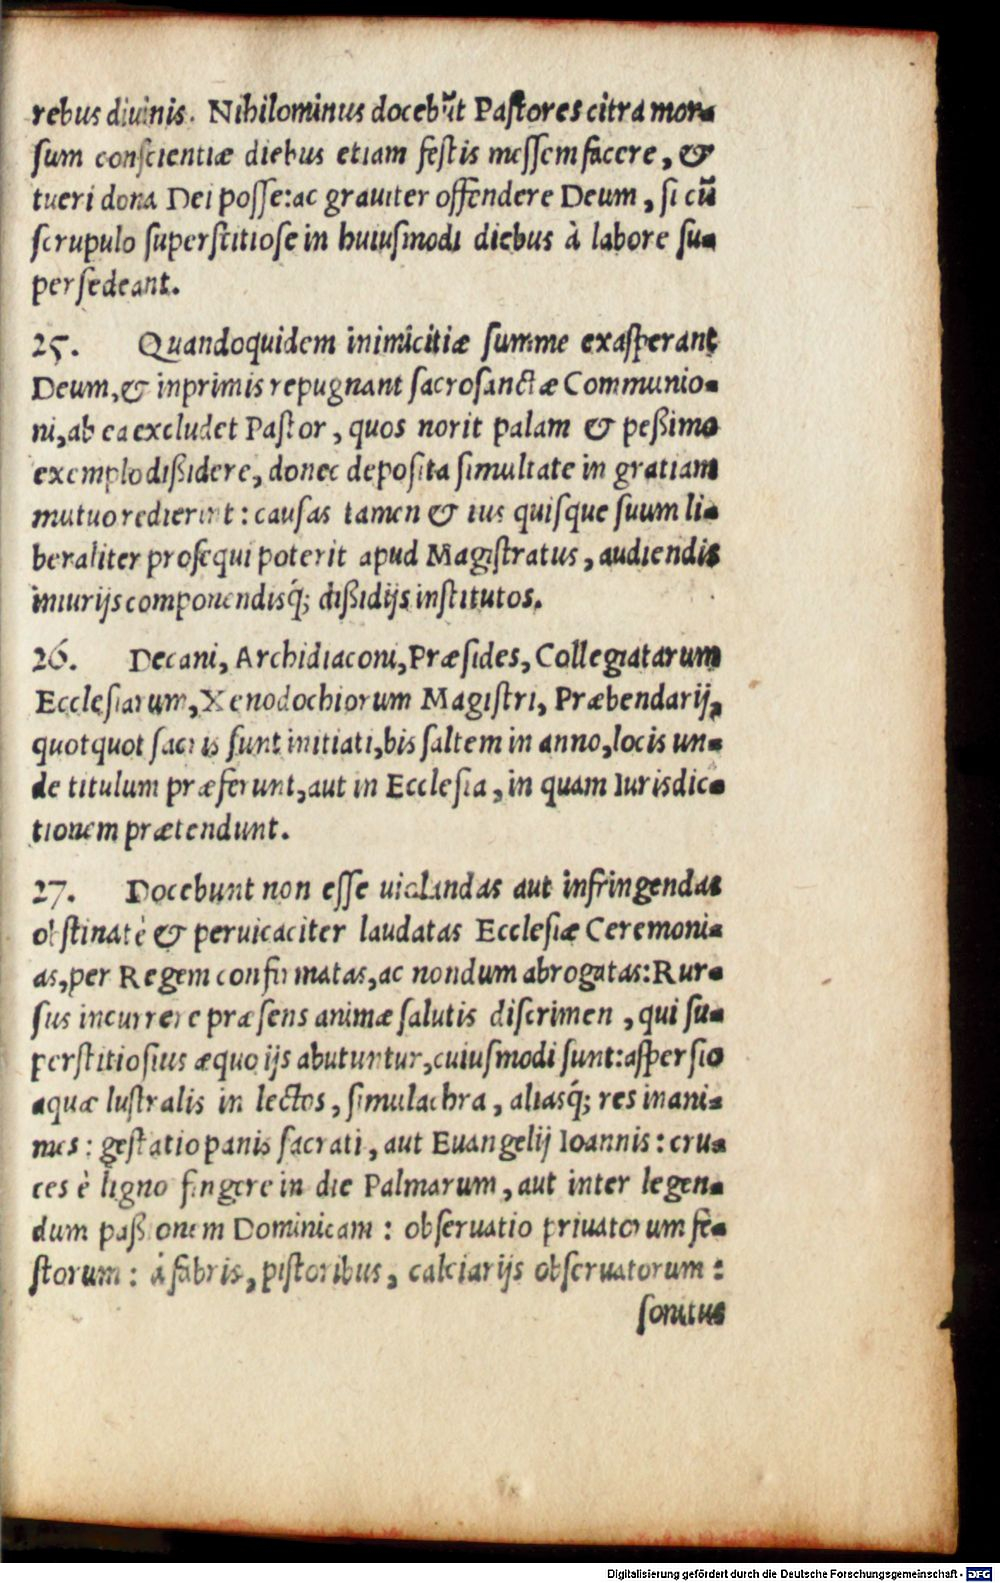 rebus diuinis. Nihilominus doceb&#x169;t Pastores citra mor-
sum conscientiæ diebus etiam festis messem facere, &
tueri dona Dei posse: ac grauiter offendere Deum, si cũ
scrupulo superstitiose in huiusmodi diebus à labore su-
persedeant.
25. Quandoquidem inimicitiæ summe exasperant
Deum, & inprimis repugnant sacrosanctæ Communio-
ni, ab ea excludet Pastor, quos norit palam & peßimo
exemplo dißidere, donec deposita simultate in gratiam
mutuo redierint: causas tamen & ius quisque suum li-
beraliter prosequi poterit apud Magistratus, audiendis
iniurijs componendisq́; dißidijs institutos.
26. Decani, Archidiaconi, Præsides, Collegiatarum
Ecclesiarum, Xenodochiorum Magistri, Præbendarij,
quotquot sacris sunt initiati, bis saltem in anno, locis un-
de titulum præferunt, aut in Ecclesia, in quam Iurisdic-
tionem prætendunt.
27. Docebunt non esse uiolandas aut infringendas
obstinatè & peruicaciter laudatas Ecclesiæ Ceremoni-
as, per Regem confirmatas, ac nondum abrogatas: Rur-
sus incurrere præsens animæ salutis discrimen, qui su-
perstitiosius æquo ijs abutuntur, cuiusmodi sunt: aspersio
aquæ lustralis in lectos, simulachra, aliasq́; res inani-
mes: gestatio panis sacrati, aut Euangelij Ioannis: cru-
ces è ligno fingere in die Palmarum, aut inter legen-
dum paßionem Dominicam: obseruatio priuatorum fe-
storum: à fabris, pistoribus, calciarijs obseruatorum:
sonitus
Digitalisierung gefördert durch die Deutsche Forschungsgemeinschaft - DFG